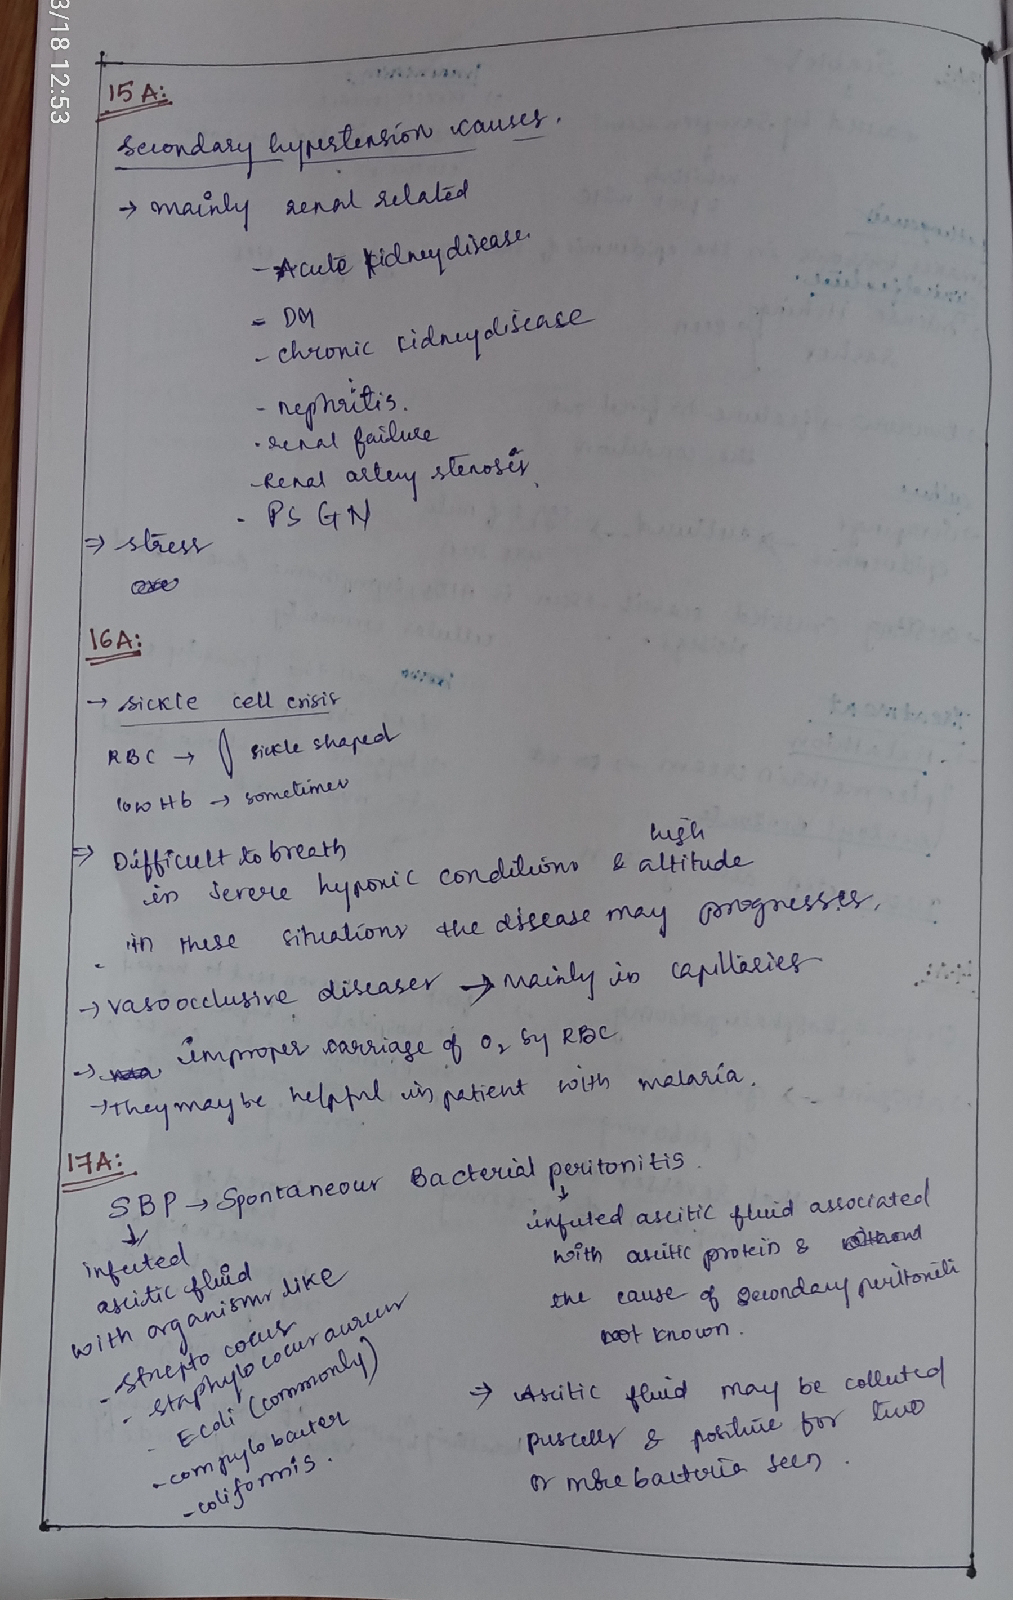 3/18 12:53
15A:
Secondary hypertension causes.
→ mainly renal related
- Acute kidney disease.
- DM
- chronic kidney disease
- nephritis.
- renal failure
- Renal artery stenosis
- PSGN
⇒ stress
16A:
→ sickle cell crisis
RBC → sickle shaped
low Hb → sometimes
⇒ Difficult to breath
in severe hypoxic conditions & high altitude
in these situations the disease may progresses.
→ vasoocclusive diseases → mainly in capillaries
→ improper carriage of O2 by RBC
→ They may be helpful in patient with malaria.
17A:
SBP → Spontaneous Bacterial peritonitis.
↓
infected
ascitic fluid
with organisms like
- strepto cocus
- staphylo cocus aureus
- Ecoli (commonly)
- compylobacter
- coliformis.
↓
infected ascitic fluid associated
with ascitic protein &
the cause of secondary peritoniti
not known.
⇒ Ascitic fluid may be collected
& positive for two
or more bacteria seen.